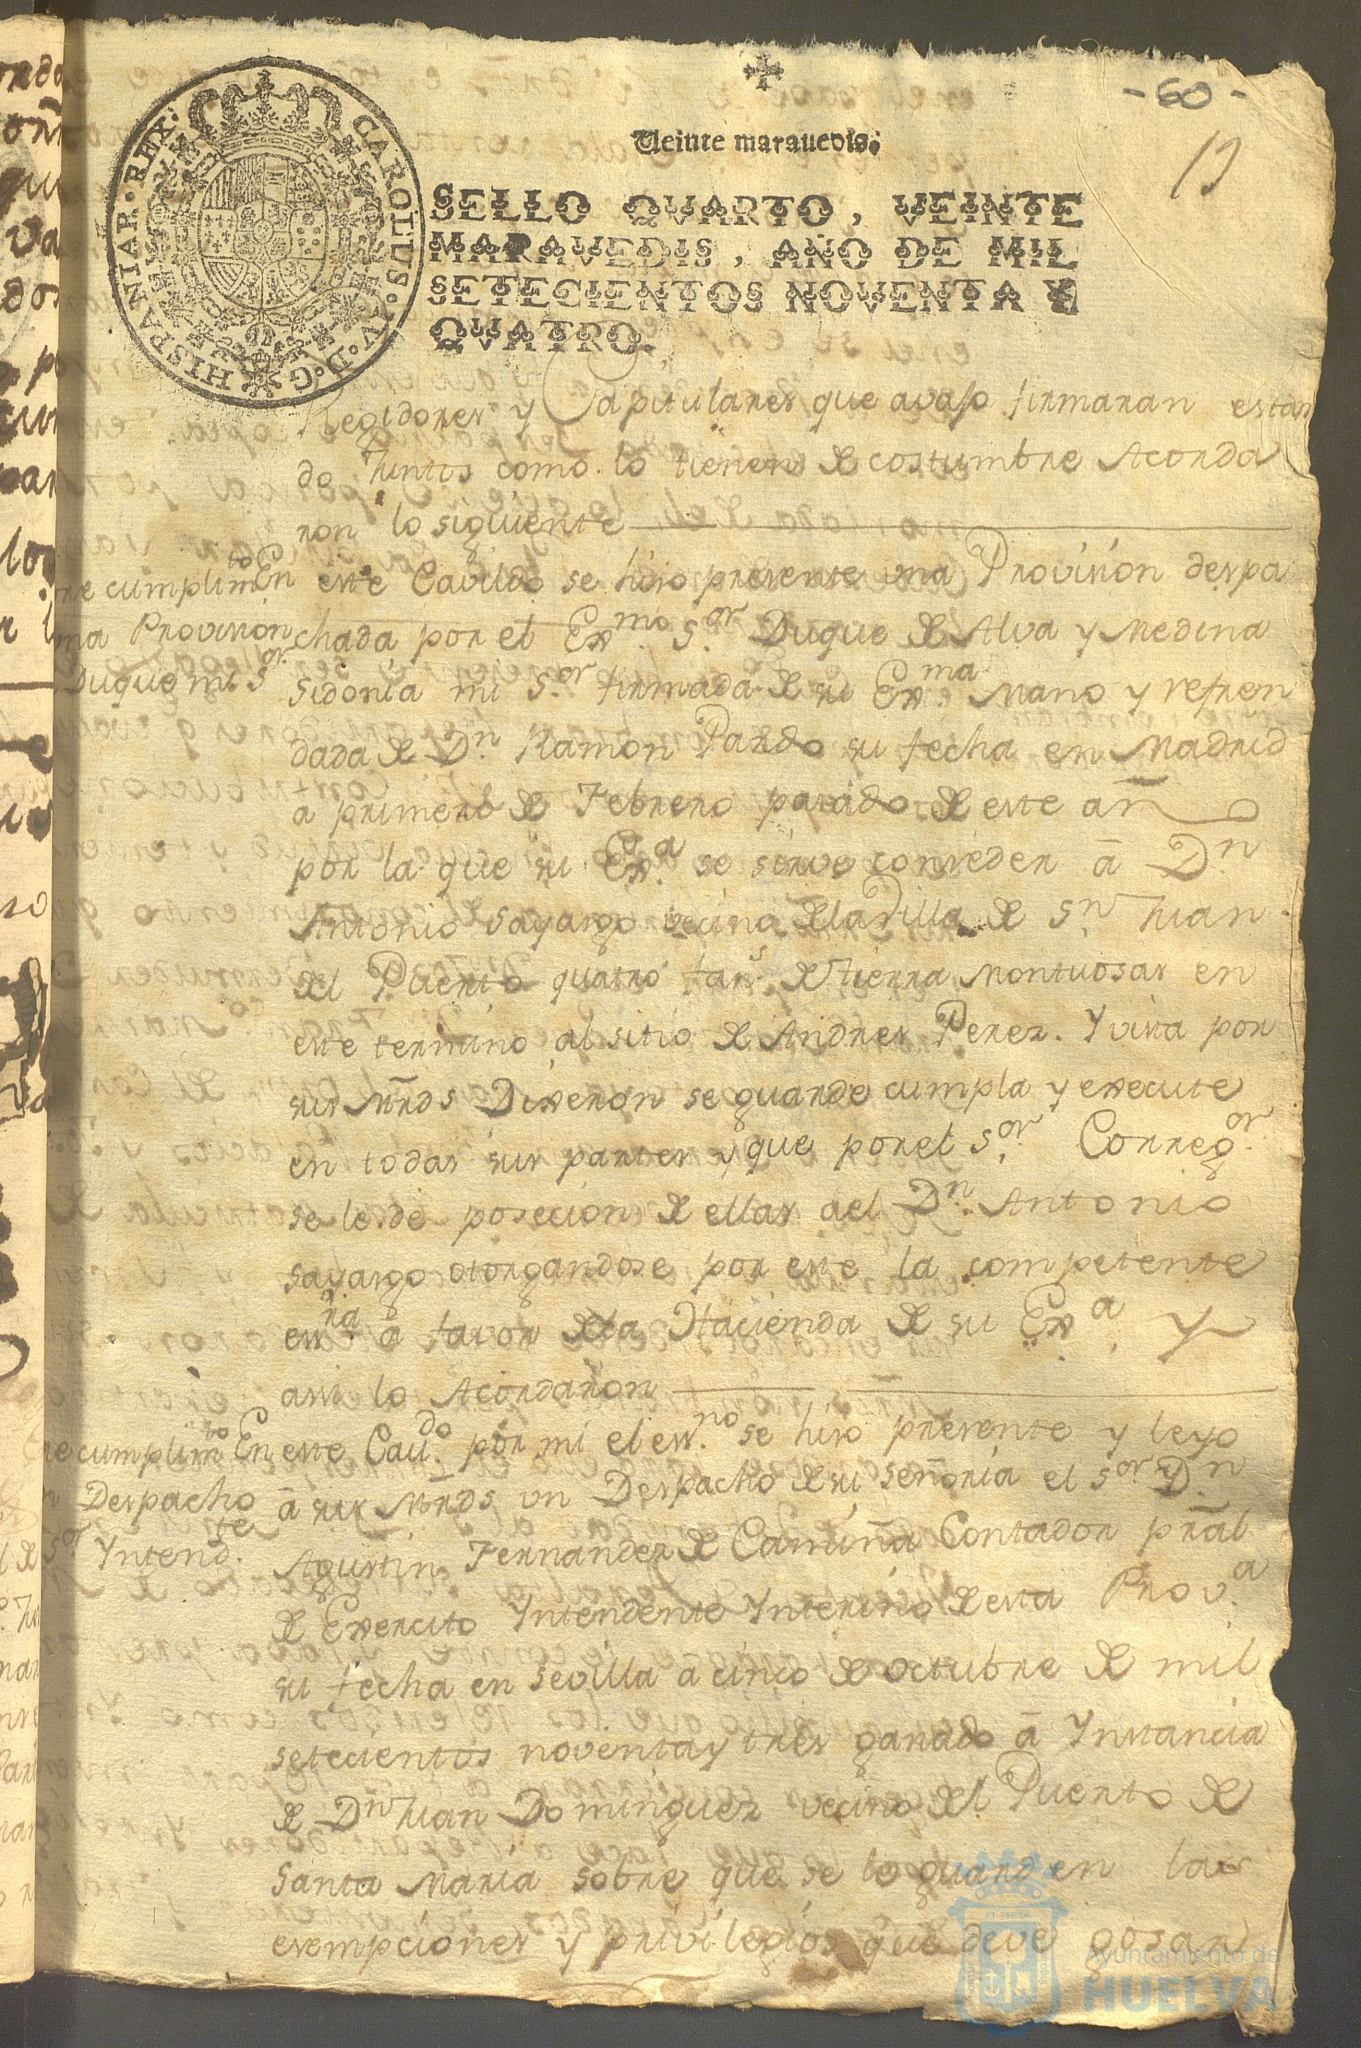 - 60 -
19
Veinte maravedis.
SELLO QVARTO, VEINTE
MARAVEDIS, AÑO DE MIL
SETECIENTOS NOVENTA Y
QVATRO.
CAROLUS. IV. D. G. HISPANIAR. REX.
Regidores y Capitulares que avaso firmaran estan
do Juntos como lo tienen de costumbre Acorda
ron lo siguiente
En este Cavildo se hiso presente una Provision despa
chada por el Exmo. Sor. Duque de Alva y Medina
Sidonia mi Sor. firmada de su Exma. Mano y refren
dada de Dn. Ramon Pardo su fecha en Madrid
a primero de Febrero pasado de este añ
por la que su Exa. se sirve conseder â Dn
Antonio Sayargo vecino dela Villa de Sn Juan
del Puerto quatro fans. de tierra Montuosas en
este termino al sitio de Andres Perez. Y vista por
sus Mrds Dixeron se guarde cumpla y execute
en todas sus partes y que por el Sor. Corregor.
se le de posecion de ellas ael Dn. Antonio
Sayargo otorgandose por este la competente
essra â favor dela Hacienda de su Exa. Y
assi lo Acordaron
cumplimto
ma Provision
Duque mi Sor
En este Caudo. por mi el essno. se hiso presente y leyo
â sus Mrds un Despacho de su señoria el Sor Dn
Agustin Fernandez de Camiña Contador pral
de Exercito Yntendente Ynterino de esta Prova.
su fecha en Sevilla a cinco de octubre de mil
setecientos noventa y tres ganado â Ynstancia
de Dn Juan Dominguez vecino del Puerto de
Santa Maria sobre que se le guarden las
esempciones y privilegios que deve gosar
cumplimto
Despacho
Sor Yntendte.
Ayuntamiento de
HUELVA